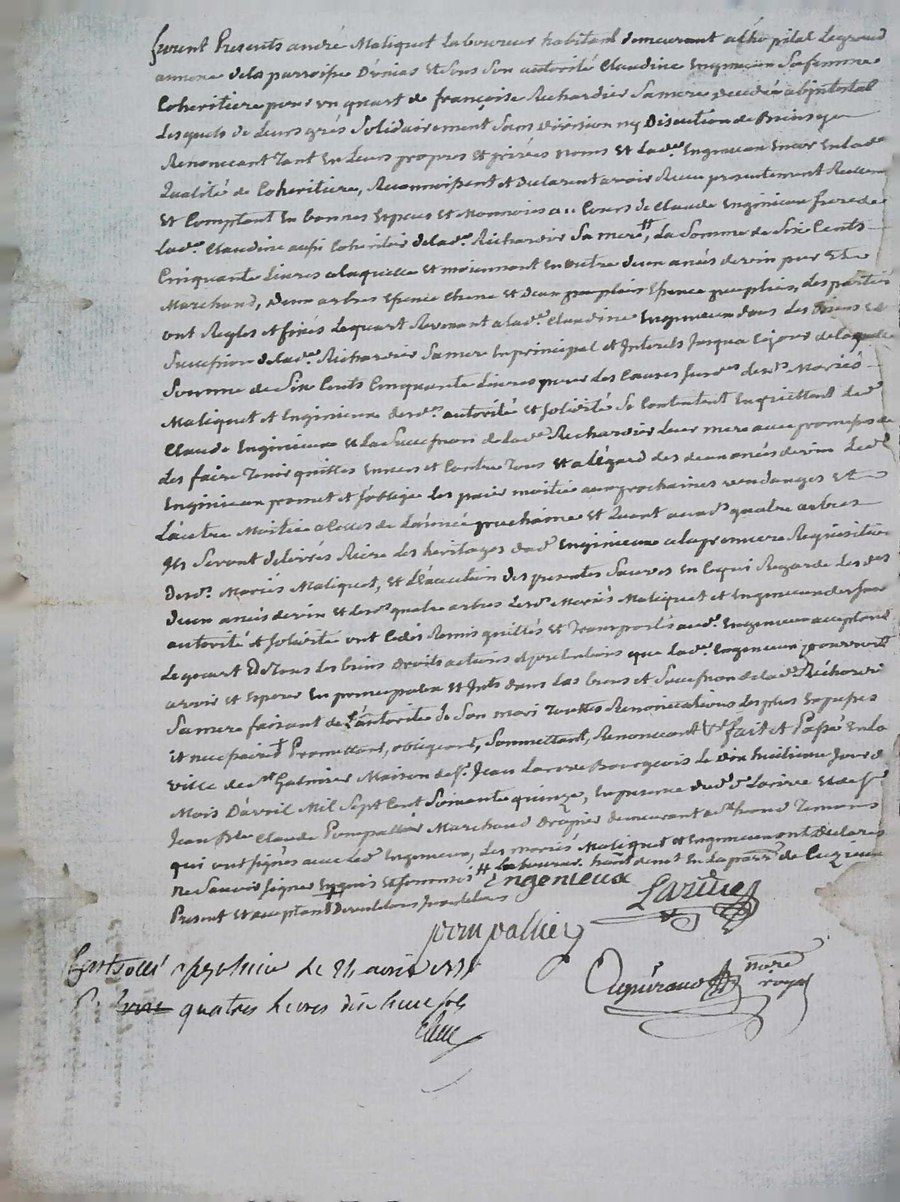 furent Presents andré Maliquet Laboureur habitant demeurant alho pital Legrand
annexe dela parroisse D'énias Et sous Son autorité Claudine Engenieux Sa femme
Coheritiere pour un quart de françoise Richardier Sa mere decedée abintestat
Lesquels de Leurs grés Solidairement Sans division ny Discution de Biens y
Renoncant Tant En Leurs propres et privées noms Et lad.e Engenieux Encor En lad.e
Qualité de Coheritiere, Reconnoissent et Declarent avoir Recu presentement Reellem
Et Comptant En bonnes Especes et Monnoies au Cours de Claude Engenieux frere de
lad.e Claudine aussi Coheritier delad.e Richardier Sa mere ++, La Somme de Six Cents
Cinquante Livres alaquelle Et moiennant En outre deux anées de vin pur Et
Marchand, deux arbres Essence Chene Et deux peupliers Essence peuplier, Les parties
ont Reglés et fixés Lequart Revenant a lad.e Claudine Engenieux dans Les Biens Et
Succession delad.e Richardier Sa mere En principal et Interets Jusqua Cejour de laquelle
Somme de Six Cents Cinquante Livres pour Les Causes susd.es Lesd.s Mariés
Maliquet et Engenieux desd.e autorité et solidité Se Contentent En quittent led.
Claude Engenieux et La Succession de lad.e Richardier Leur mere avec promesse de
Les faire Tenir quittes Envers et Contre Tous Et a L'égard des deux anées de vin Led.
Engenieux promet et s'oblige Les paier moitié aux prochaines vendanges Et
L'autre Moitié a Celles de L'année prochaine Et Quant auxd.s quatre arbres
Ils Seront delivrés Riere Les heritages dud. Engenieux a la premiere Requisition
Desd.s Mariés Maliquet, et L'éxecution des presentes Sauves En Cequi Regarde Lesdes
deux anées de vin et lesd.s quatre arbres Lesd.s Mariés Maliquet et Engenieux desusd.
autorité et solidité ont Cedés Remis quittés et Transportés aud. Engenieux acceptant
Le quart De Tous Les biens droits actions et pretentions que lad.e Engenieux pourroit
avoir et Esperer En principaux et Ints dans Les biens et Succession delad.e Richardier
Sa mere faisant de L'autorité de Son mari Touttes Renonciations Les plus Expresses
et necessaires Promettant, obligeant, Soumettant, Renoncant &.a fait et Passé En la
ville de St Galmier Maison de S.r Jean Larive Bourgeois Le dix huitieme Jour du
Mois D'avril Mil Sept Cent Soixante quinze, En presence dud. S.r Larive et de S.r
Jean B.te Claude Pompallier Marchand Drapier demeurant aud. lieu Temoins
qui ont signés avec led. Engenieux, Les mariés Maliquet et Engenieux ont Declarés
ne Savoir signer Enquis Et sommés ++ Laboureur hant demt En La parr.e de Cuzieu
Present et acceptant
Engenieux
Larive
pompallier
Controllé a St Galmier le 21 avril 1775
R. quatres livres dix huit sols
notre
royal